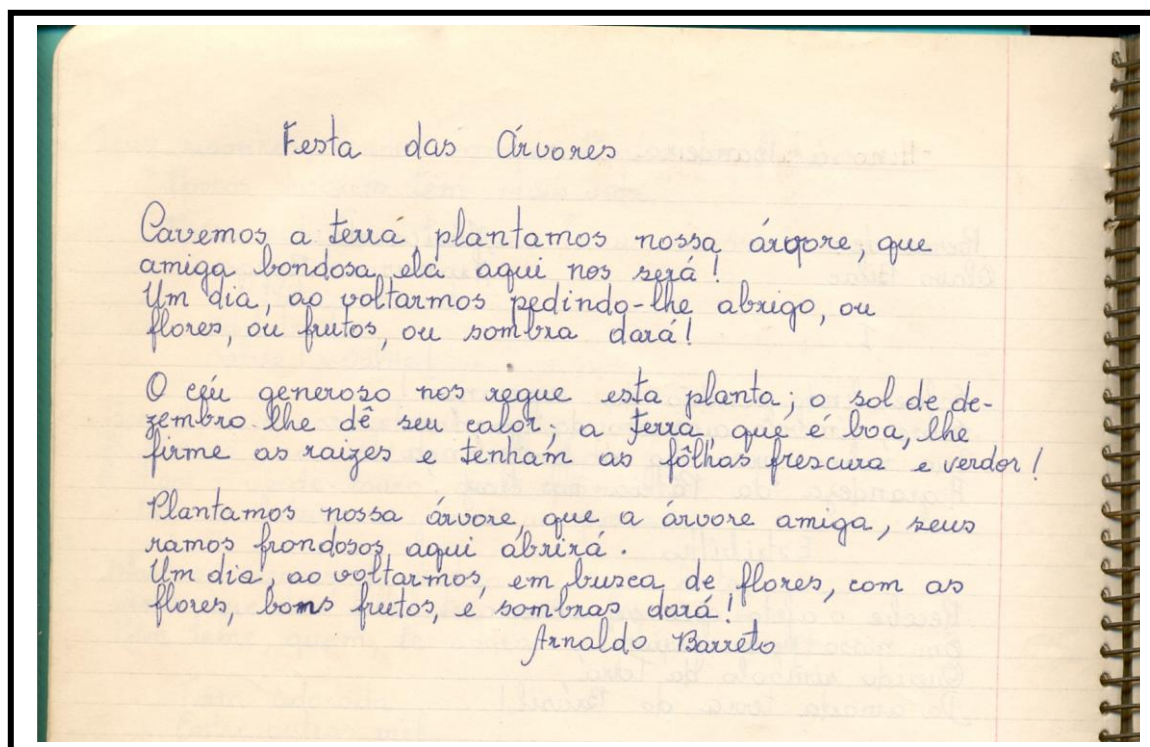 Festa das Árvores
Cavemos a terrá plantamos nossa árvore, que
amiga bondosa elá aqui nos será!
Um dia, ao voltarmos pedindo-lhe abrigo, ou
flores, ou frutos, ou sombra dará!
O céu generoso nos regue esta planta; o sol de de-
zembro lhe dê seu calor, a terra, que é boa, lhe
firme as raizes e tenham as fôlhas frescura e verdor!
Plantamos nossa árvore, que a árvore amiga, seus
ramos frondosos aqui abrirá.
Um dia, ao voltarmos, em busca de flores, com as
flores, bons frutos, e sombras dará!
Arnaldo Barreto